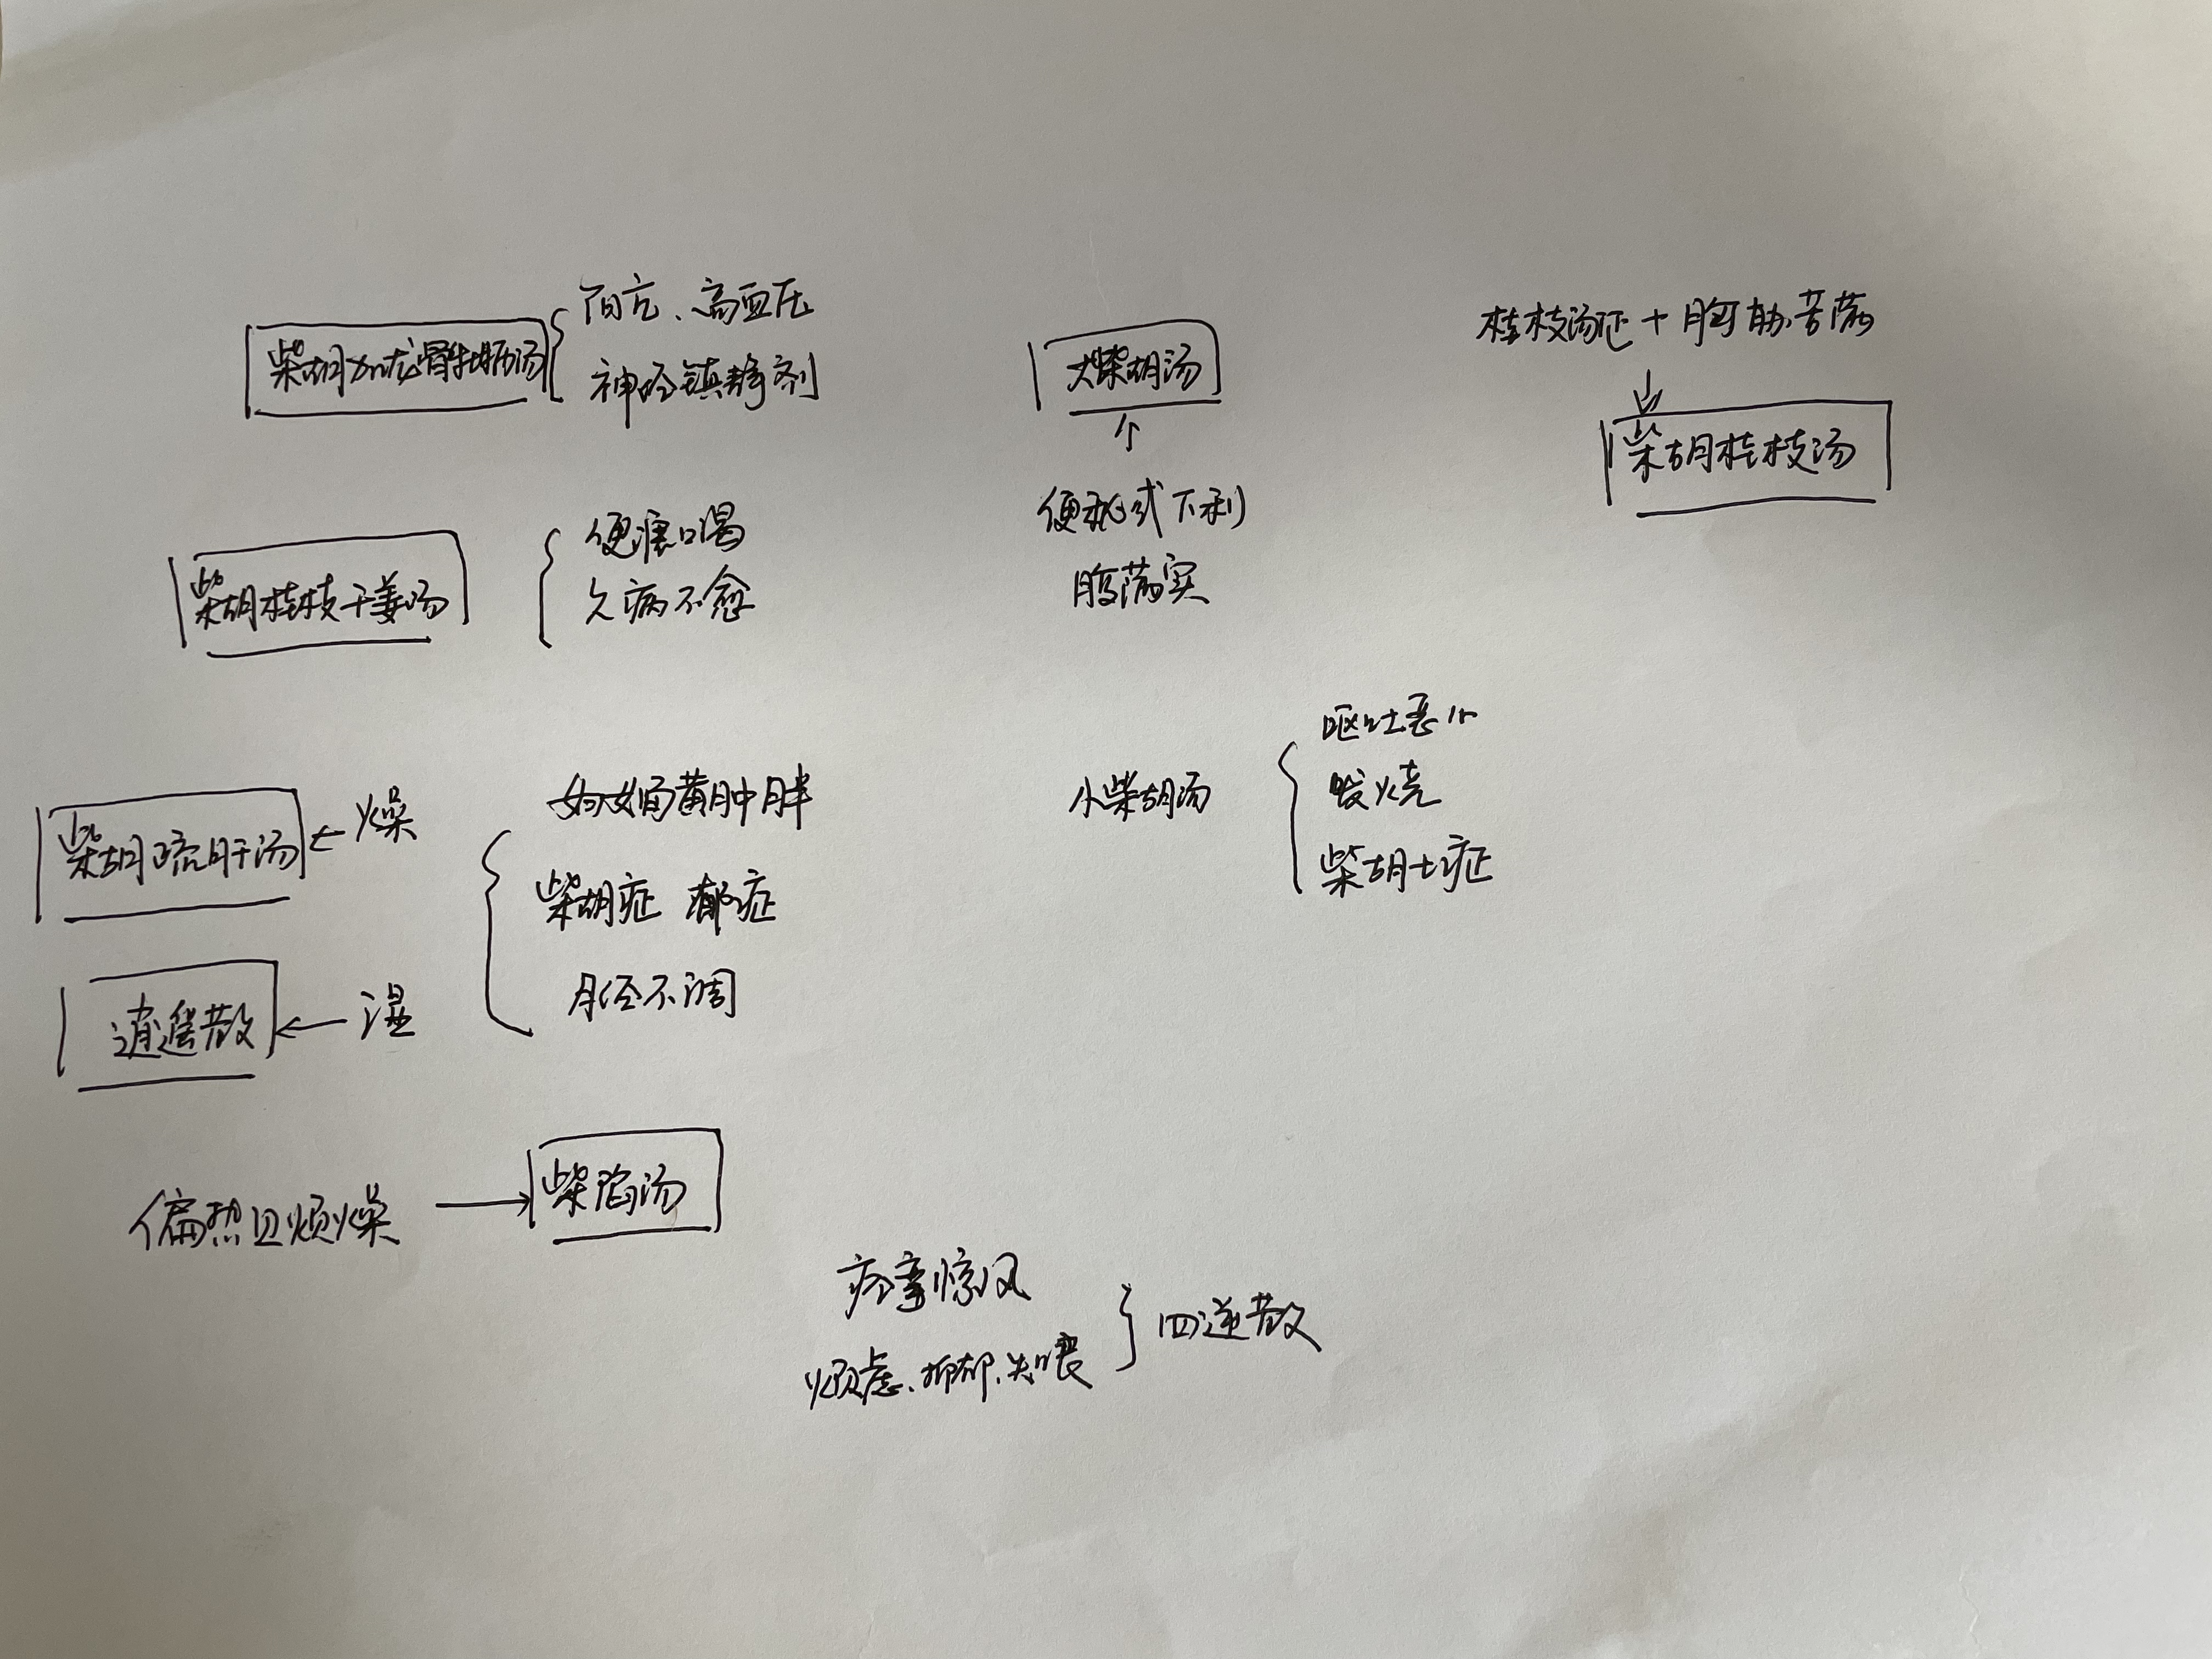 柴胡加龙骨牡蛎汤
阳亢、高血压
神经镇静剂
大柴胡汤
便秘或下利
腹满实
桂枝汤证+胸胁苦满
柴胡桂枝汤
柴胡桂枝干姜汤
便溏口渴
久病不愈
柴胡疏肝汤
燥
逍遥散
湿
妇女面黄肿胖
柴胡症 郁症
月经不调
小柴胡汤
呕吐恶心
发烧
柴胡七症
偏热且烦燥
柴陷汤
痉挛惊风
烦虑、抑郁、失眠
四逆散